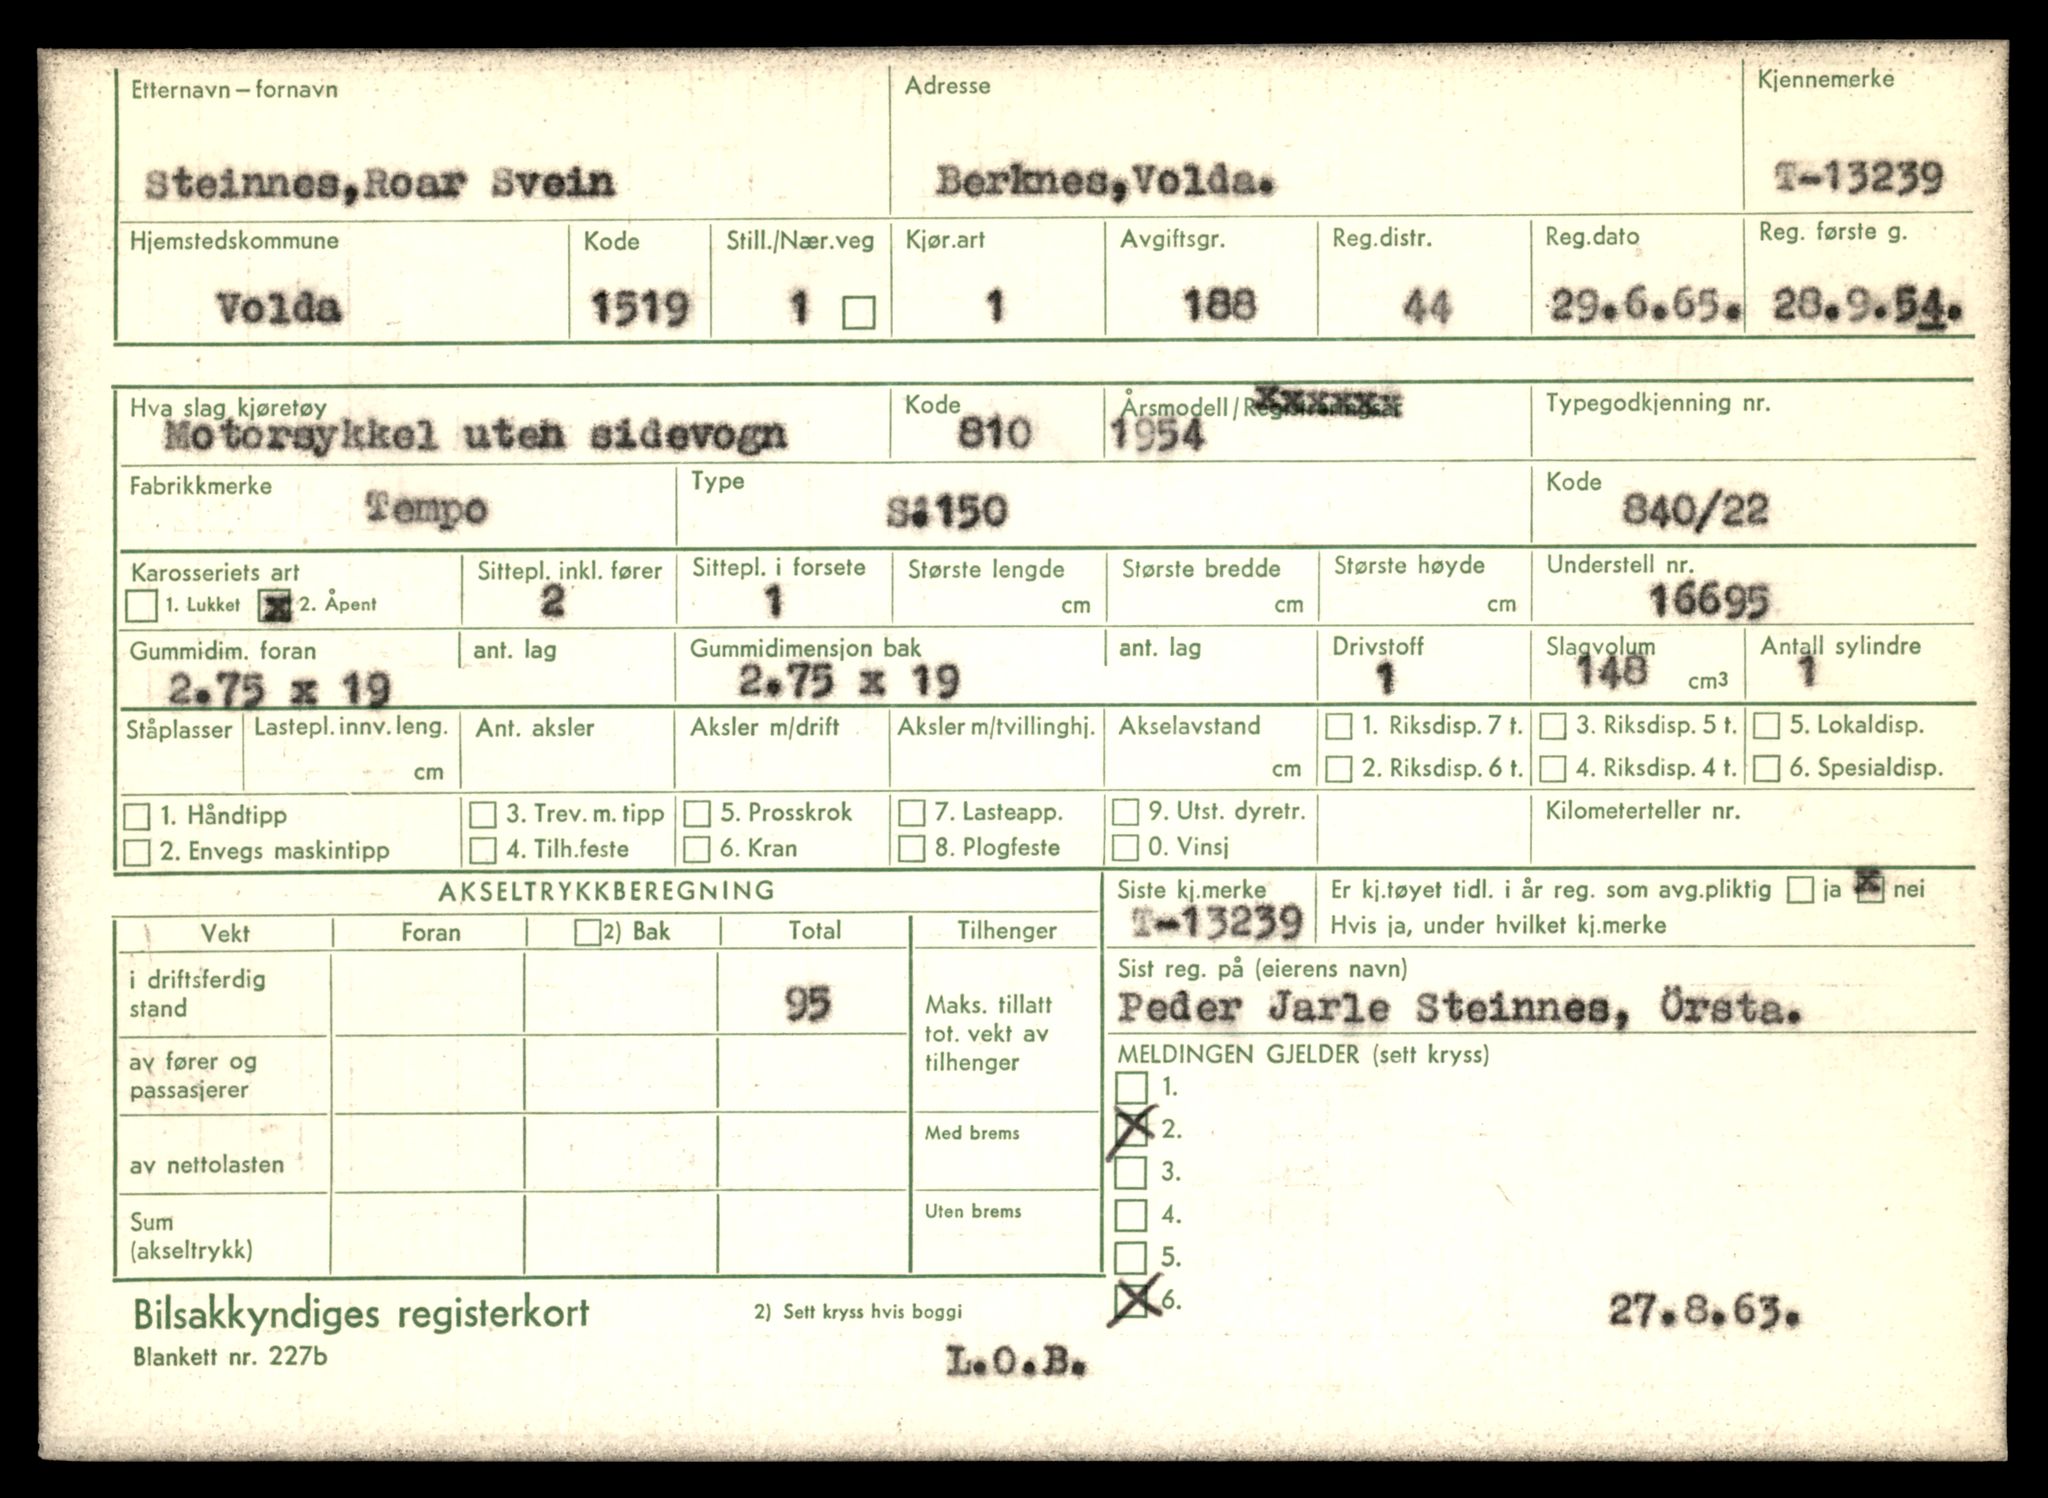 Etternavn – fornavn Adresse Kjennemerke
Steinnes, Roar Svein Berknes, Volda. T-13239
Hjemstedskommune Kode Still./Nær.veg Kjør.art Avgiftsgr. Reg.distr. Reg.dato Reg. første g.
Volda 1519 1 1 188 44 29.6.65. 28.9.54.
Hva slag kjøretøy Kode Årsmodell/Registreringsår Typegodkjenning nr.
Motorsykkel uten sidevogn 810 1954
Fabrikkmerke Type Kode
Tempo S.150 840/22
Karosseriets art Sittepl. inkl. fører Sittepl. i forsete Største lengde Største bredde Største høyde Understell nr.
1. Lukket x 2. Åpent 2 1 cm cm cm 16695
Gummidim. foran ant. lag Gummidimensjon bak ant. lag Drivstoff Slagvolum Antall sylindre
2.75 x 19 2.75 x 19 1 148 cm3 1
Ståplasser Lastepl. innv. leng. Ant. aksler Aksler m/drift Aksler m/tvillinghj. Akselavstand 1. Riksdisp. 7 t. 3. Riksdisp. 5 t. 5. Lokaldisp.
cm cm 2. Riksdisp. 6 t. 4. Riksdisp. 4 t. 6. Spesialdisp.
1. Håndtipp 3. Trev. m. tipp 5. Prosskrok 7. Lasteapp. 9. Utst. dyretr. Kilometerteller nr.
2. Envegs maskintipp 4. Tilh.feste 6. Kran 8. Plogfeste 0. Vinsj
AKSELTRYKKBEREGNING Siste kj.merke Er kj.tøyet tidl. i år reg. som avg.pliktig ja x nei
T-13239 Hvis ja, under hvilket kj.merke
Vekt Foran 2) Bak Total Tilhenger
Sist reg. på (eierens navn)
Peder Jarle Steinnes, Örsta.
i driftsferdig
stand 95
Maks. tillatt
tot. vekt av
tilhenger
MELDINGEN GJELDER (sett kryss)
av fører og
passasjerer
1.
Med brems
X 2.
av nettolasten
3.
Uten brems
4.
Sum
(akseltrykk)
5.
X 6. 27.8.63.
Bilsakkyndiges registerkort 2) Sett kryss hvis boggi
Blankett nr. 227b L.O.B.